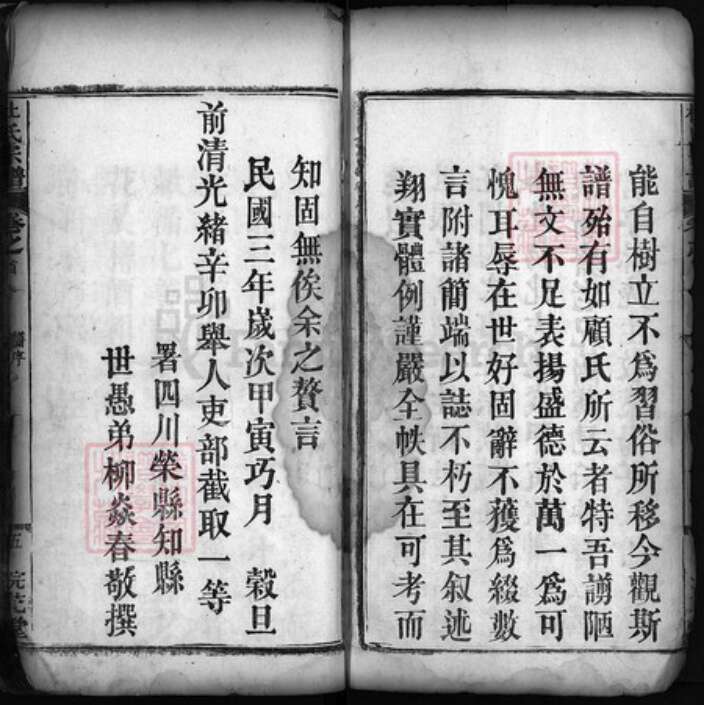 能自樹立不爲習俗所移今觀斯
譜殆有如顧氏所云者特吾謭陋
無文不足表揚盛德於萬一爲可
愧耳辱在世好固辭不獲爲綴數
言附諸簡端以誌不朽至其叙述
翔實體例謹嚴全帙具在可考而
知固無俟余之贅言
民國三年歲次甲寅巧月 榖旦
前清光緒辛卯舉人吏部截取一等
署四川榮縣知縣
世愚弟柳焱春敬撰
杜氏宗譜 卷之首
五